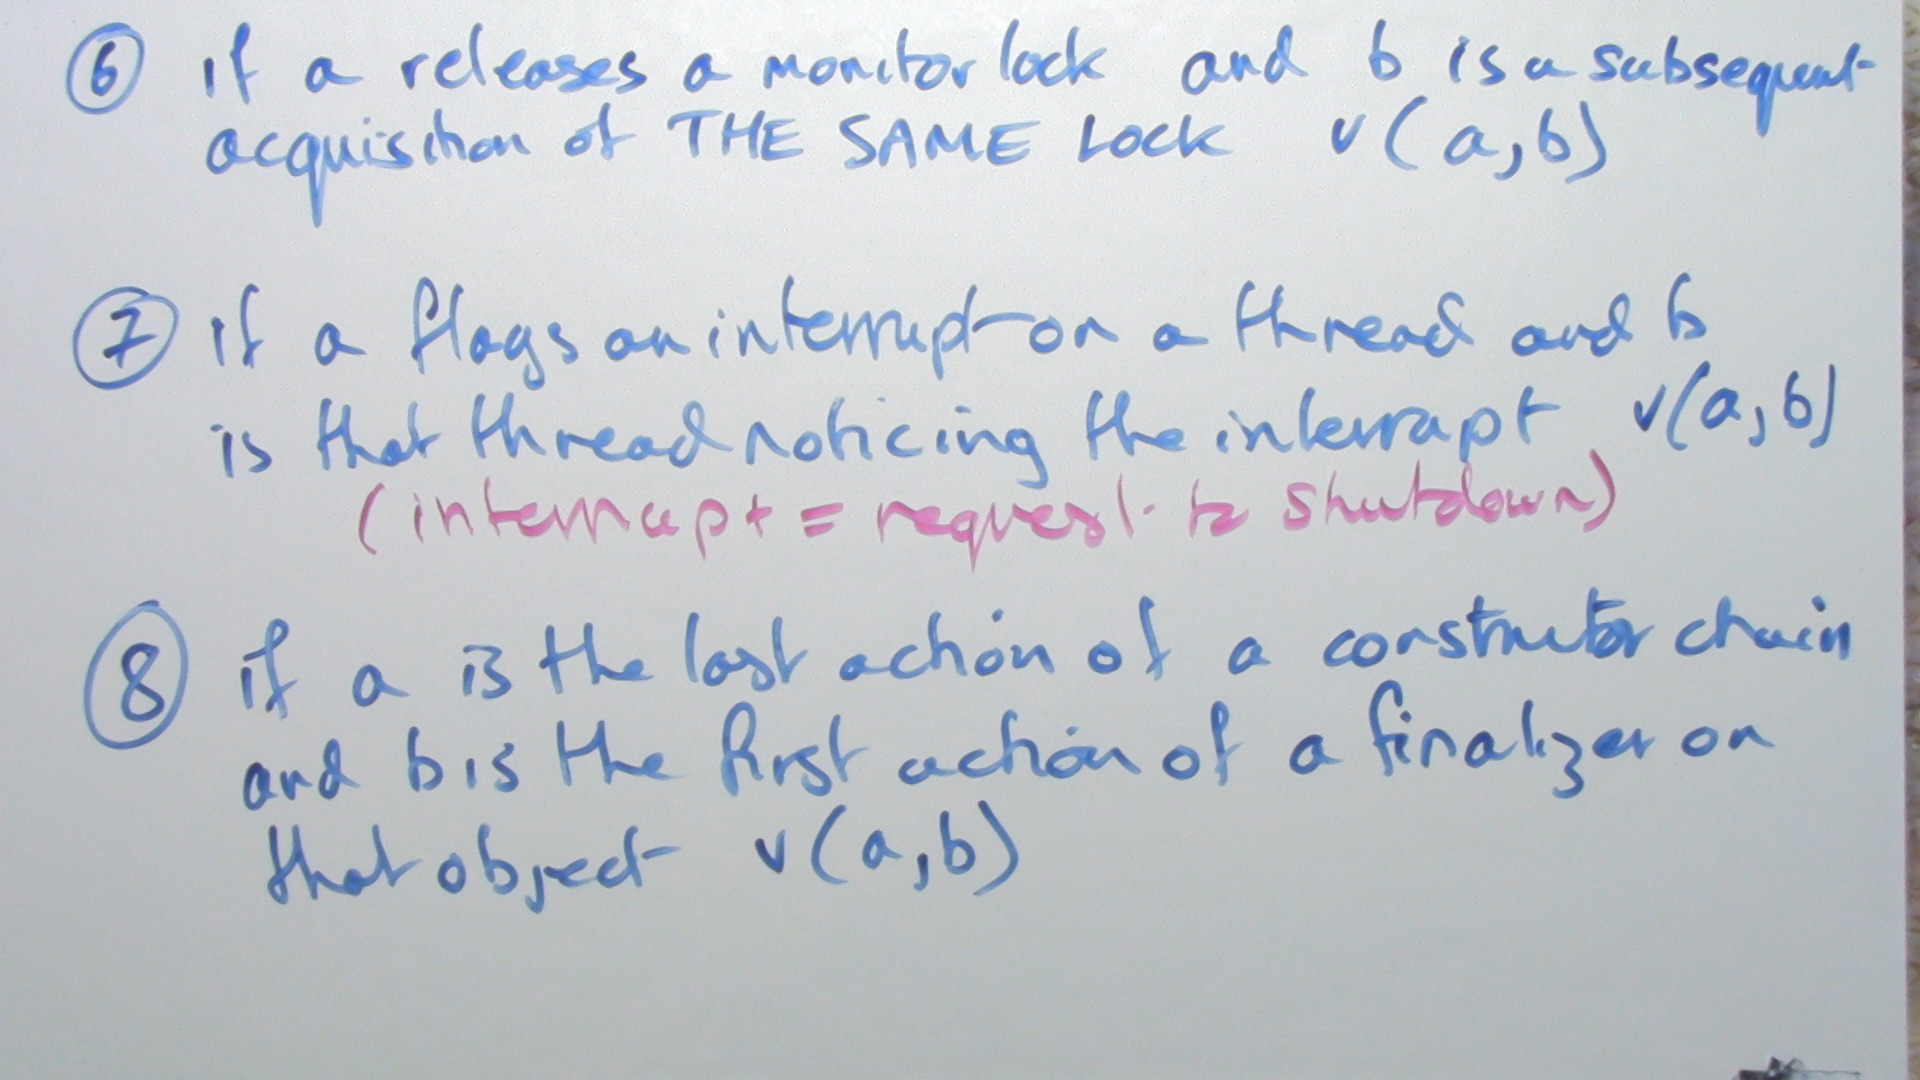 ⑥ if a releases a monitor lock and b is a subsequent
acquisition of THE SAME LOCK v(a,b)
⑦ if a flags an interrupt on a thread and b
is that thread noticing the interrupt v(a,b)
(interrupt = request to shutdown)
⑧ if a is the last action of a constructor chain
and b is the first action of a finalizer on
that object v(a,b)